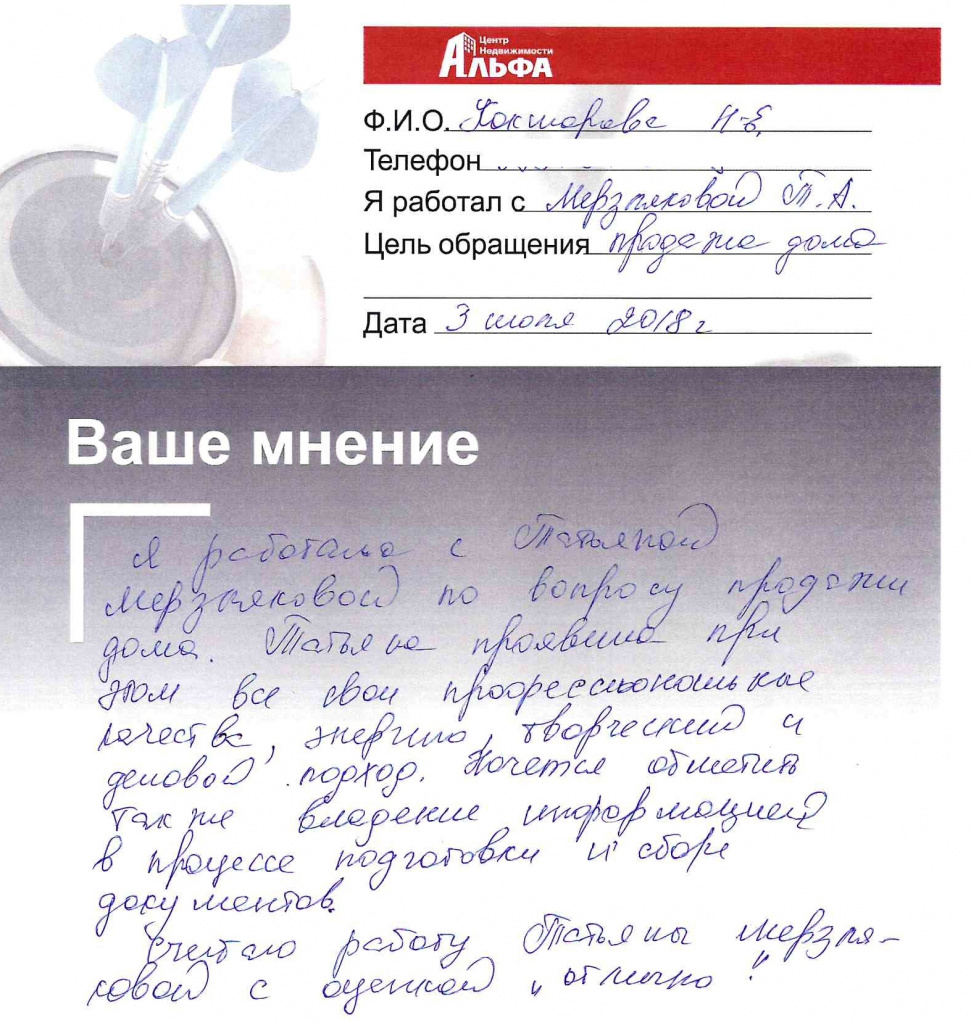 Центр
Недвижимости
АЛЬФА
Ф.И.О. Кокшарова Н.Е.
Телефон
Я работал с Мерзляковой Т.А.
Цель обращения продажа дома
Дата 3 июля 2018 г
Ваше мнение
Я работала с Татьяной
Мерзляковой по вопросу продажи
дома. Татьяна проявила при
этом все свои профессиональные
качества, энергию, творческий и
деловой подход. Хочется отметить
также владение информацией
в процессе подготовки и сборе
документов.
Считаю работу Татьяны Мерзля-
ковой с оценкой „отлично".